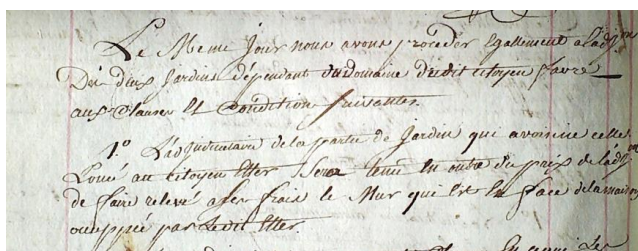 Le Meme jour nous avons proceder Egallement a l'adj.on
De deux Jardins dépendant du domaine dudit citoyen favre
aux Clauses Et Condition suivantes.
1.o L'adjudicataire de la partie de Jardin qui avoisine celle
Loué au citoyen Etter Sera tenu En outre du prix de l'adj.on
de faire relevé a ses frais le Mur qui Est En face de la maison
occuppée par Ledit Etter.